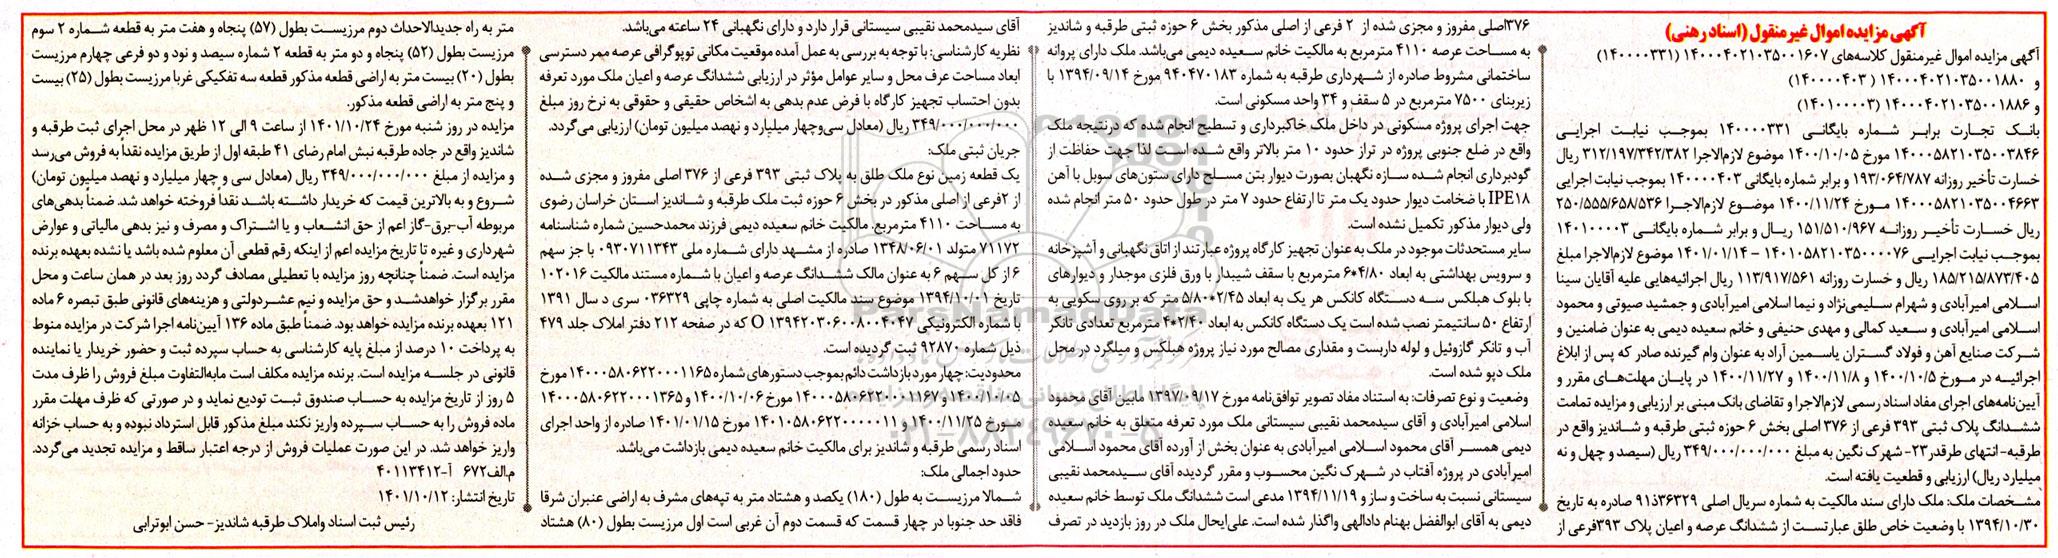 آگهی مزایده اموال غیرمنقول (اسناد رهنی)
آگهی مزایده اموال غیرمنقول کلاسه‌های ۱۴۰۰۰۴۰۲۱۰۳۵۰۰۱۶۰۷ (۱۴۰۰۰۰۳۳۱)
و ۱۴۰۰۰۴۰۲۱۰۳۵۰۰۱۸۸۰ (۱۴۰۰۰۰۴۰۳)
و ۱۴۰۰۰۴۰۲۱۰۳۵۰۰۱۸۸۶ (۱۴۰۱۰۰۰۰۳)
بانک تجارت برابر شماره بایگانی ۱۴۰۰۰۰۳۳۱ بموجب نیابت اجرایی
۱۴۰۰۰۵۸۲۱۰۳۵۰۰۳۸۴۶ مورخ ۱۴۰۰/۱۰/۰۵ موضوع لازم‌الاجرا ۳۱۲/۱۹۷/۳۴۲/۳۸۲ ریال
خسارت تأخیر روزانه ۱۹۳/۰۶۴/۷۸۷ و برابر شماره بایگانی ۱۴۰۰۰۰۴۰۳ بموجب نیابت اجرایی
۱۴۰۰۰۵۸۲۱۰۳۵۰۰۴۶۶۳ مورخ ۱۴۰۰/۱۱/۲۴ موضوع لازم‌الاجرا ۲۵۰/۵۵۵/۶۵۸/۵۳۶
ریال خسارت تأخیر روزانه ۱۵۱/۵۱۰/۹۶۷ ریال و برابر شماره بایگانی ۱۴۰۱۰۰۰۰۳
بموجب نیابت اجرایی ۱۴۰۱۰۵۸۲۱۰۳۵۰۰۰۰۷۶ – ۱۴۰۱/۰۱/۱۴ موضوع لازم‌الاجرا مبلغ
۱۸۵/۲۱۵/۸۷۳/۴۰۵ ریال و خسارت روزانه ۱۱۳/۹۱۷/۵۶۱ ریال اجرائیه‌هایی علیه آقایان سینا
اسلامی امیرآبادی و شهرام سلیمی‌نژاد و نیما اسلامی امیرآبادی و جمشید صبوتی و محمود
اسلامی امیرآبادی و سعید کمالی و مهدی حنیفی و خانم سعیده دیمی به عنوان ضامنین و
شرکت صنایع آهن و فولاد گستران یاسمین آراد به عنوان وام گیرنده صادر که پس از ابلاغ
اجرائیه در مورخ ۱۴۰۰/۱۰/۵ و ۱۴۰۰/۱۱/۸ و ۱۴۰۰/۱۱/۲۷ در پایان مهلت‌های مقرر و
آیین‌نامه‌های اجرای مفاد اسناد رسمی لازم‌الاجرا و تقاضای بانک مبنی بر ارزیابی و مزایده تمامت
ششدانگ پلاک ثبتی ۳۹۳ فرعی از ۳۷۶ اصلی بخش ۶ حوزه ثبتی طرقبه و شاندیز واقع در
طرقبه- انتهای طرقدر۲۳- شهرک نگین به مبلغ ۳۴۹/۰۰۰/۰۰۰/۰۰۰ ریال (سیصد و چهل و نه
میلیارد ریال) ارزیابی و قطعیت یافته است.
مشخصات ملک: ملک دارای سند مالکیت به شماره سریال اصلی ۹۱د۳۶۳۲۹ صادره به تاریخ
۱۳۹۴/۱۰/۳۰ با وضعیت خاص طلق عبارتست از ششدانگ عرصه و اعیان پلاک ۳۹۳فرعی از
۳۷۶اصلی مفروز و مجزی شده از ۲ فرعی از اصلی مذکور بخش ۶ حوزه ثبتی طرقبه و شاندیز
به مساحت عرصه ۴۱۱۰ مترمربع به مالکیت خانم سعیده دیمی می‌باشد. ملک دارای پروانه
ساختمانی مشروط صادره از شهرداری طرقبه به شماره ۹۴۰۴۷۰۱۸۳ مورخ ۱۳۹۴/۰۹/۱۴ با
زیربنای ۷۵۰۰ مترمربع در ۵ سقف و ۳۴ واحد مسکونی است.
جهت اجرای پروژه مسکونی در داخل ملک خاکبرداری و تسطیح انجام شده که درنتیجه ملک
واقع در ضلع جنوبی پروژه در تراز حدود ۱۰ متر بالاتر واقع شده است لذا جهت حفاظت از
گودبرداری انجام شده سازه نگهبان بصورت دیوار بتن مسلح دارای ستون‌های سوبل با آهن
IPE۱۸ با ضخامت دیوار حدود یک متر تا ارتفاع حدود ۷ متر در طول حدود ۵۰ متر انجام شده
ولی دیوار مذکور تکمیل نشده است.
سایر مستحدثات موجود در ملک به عنوان تجهیز کارگاه پروژه عبارتند از اتاق نگهبانی و آشپزخانه
و سرویس بهداشتی به ابعاد ۴/۸۰*۶ مترمربع با سقف شیبدار با ورق فلزی موجدار و دیوارهای
با بلوک هبلکس سه دستگاه کانکس هر یک به ابعاد ۲/۴۵*۵/۸۰ متر که بر روی سکویی به
ارتفاع ۵۰ سانتیمتر نصب شده است یک دستگاه کانکس به ابعاد ۲/۴۰*۴ مترمربع تعدادی تانکر
آب و تانکر گازوئیل و لوله داربست و مقداری مصالح مورد نیاز پروژه هبلکس و میلگرد در محل
ملک دپو شده است.
وضعیت و نوع تصرفات: به استناد مفاد تصویر توافق‌نامه مورخ ۱۳۹۷/۰۹/۱۷ مابین آقای محمود
اسلامی امیرآبادی و آقای سیدمحمد نقیبی سیستانی ملک مورد تعرفه متعلق به خانم سعیده
دیمی همسر آقای محمود اسلامی امیرآبادی به عنوان بخش از آورده آقای محمود اسلامی
امیرآبادی در پروژه آفتاب در شهرک نگین محسوب و مقرر گردیده آقای سیدمحمد نقیبی
سیستانی نسبت به ساخت و ساز و ۱۳۹۴/۱۱/۱۹ مدعی است ششدانگ ملک توسط خانم سعیده
دیمی به آقای ابوالفضل بهنام دادالهی واگذار شده است. علی‌ایحال ملک در روز بازدید در تصرف
آقای سیدمحمد نقیبی سیستانی قرار دارد و دارای نگهبانی ۲۴ ساعته می‌باشد.
نظریه کارشناسی: با توجه به بررسی به عمل آمده موقعیت مکانی توپوگرافی عرصه ممر دسترسی
ابعاد مساحت عرف محل و سایر عوامل مؤثر در ارزیابی ششدانگ عرصه و اعیان ملک مورد تعرفه
بدون احتساب تجهیز کارگاه با فرض عدم بدهی به اشخاص حقیقی و حقوقی به نرخ روز مبلغ
۳۴۹/۰۰۰/۰۰۰/۰۰۰ ریال (معادل سی‌وچهار میلیارد و نهصد میلیون تومان) ارزیابی می‌گردد.
جریان ثبتی ملک:
یک قطعه زمین نوع ملک طلق به پلاک ثبتی ۳۹۳ فرعی از ۳۷۶ اصلی مفروز و مجزی شده
از ۲فرعی از اصلی مذکور در بخش ۶ حوزه ثبت ملک طرقبه و شاندیز استان خراسان رضوی
به مساحت ۴۱۱۰ مترمربع. مالکیت خانم سعیده دیمی فرزند محمدحسین شماره شناسنامه
۷۱۱۷۲ متولد ۱۳۴۸/۰۶/۰۱ صادره از مشهد دارای شماره ملی ۰۹۳۰۷۱۱۳۴۳ با جز سهم
۶ از کل سهم ۶ به عنوان مالک ششدانگ عرصه و اعیان با شماره مستند مالکیت ۱۰۲۰۱۶
تاریخ ۱۳۹۴/۱۰/۰۱ موضوع سند مالکیت اصلی به شماره چاپی ۰۳۶۳۲۹ سری د سال ۱۳۹۱
با شماره الکترونیکی ۱۳۹۴۲۰۳۰۶۰۰۸۰۰۴۰۴۷ O که در صفحه ۲۱۲ دفتر املاک جلد ۴۷۹
ذیل شماره ۹۲۸۷۰ ثبت گردیده است.
محدودیت: چهار مورد بازداشت دائم بموجب دستورهای شماره ۱۴۰۰۰۵۸۰۶۲۲۰۰۰۱۱۶۵ مورخ
۱۴۰۰/۱۰/۰۵ و ۱۴۰۰۰۵۸۰۶۲۲۰۰۰۱۱۶۷ مورخ ۱۴۰۰/۱۰/۰۶ و ۱۴۰۰۰۵۸۰۶۲۲۰۰۰۱۳۶۵
مورخ ۱۴۰۰/۱۱/۲۵ و ۱۴۰۱۰۵۸۰۶۲۲۰۰۰۰۰۱۱ مورخ ۱۴۰۱/۰۱/۱۵ صادره از واحد اجرای
اسناد رسمی طرقبه و شاندیز برای مالکیت خانم سعیده دیمی بازداشت می‌باشد.
حدود اجمالی ملک:
شمالا مرزیست به طول (۱۸۰) یکصد و هشتاد متر به تپه‌های مشرف به اراضی عنبران شرقا
فاقد حد جنوبا در چهار قسمت که قسمت دوم آن غربی است اول مرزیست بطول (۸۰) هشتاد
متر به راه جدیدالاحداث دوم مرزیست بطول (۵۷) پنجاه و هفت متر به قطعه شماره ۲ سوم
مرزیست بطول (۵۲) پنجاه و دو متر به قطعه ۲ شماره سیصد و نود و دو فرعی چهارم مرزیست
بطول (۲۰) بیست متر به اراضی قطعه مذکور قطعه سه تفکیکی غربا مرزیست بطول (۲۵) بیست
و پنج متر به اراضی قطعه مذکور.
مزایده در روز شنبه مورخ ۱۴۰۱/۱۰/۲۴ از ساعت ۹ الی ۱۲ ظهر در محل اجرای ثبت طرقبه و
شاندیز واقع در جاده طرقبه نبش امام رضای ۴۱ طبقه اول از طریق مزایده نقداً به فروش می‌رسد
و مزایده از مبلغ ۳۴۹/۰۰۰/۰۰۰/۰۰۰ ریال (معادل سی و چهار میلیارد و نهصد میلیون تومان)
شروع و به بالاترین قیمت که خریدار داشته باشد نقداً فروخته خواهد شد. ضمناً بدهی‌های
مربوطه آب-برق-گاز اعم از حق انشعاب و یا اشتراک و مصرف و نیز بدهی مالیاتی و عوارض
شهرداری و غیره تا تاریخ مزایده اعم از اینکه رقم قطعی آن معلوم شده باشد یا نشده بعهده برنده
مزایده است. ضمناً چنانچه روز مزایده با تعطیلی مصادف گردد روز بعد در همان ساعت و محل
مقرر برگزار خواهدشد و حق مزایده و نیم عشردولتی و هزینه‌های قانونی طبق تبصره ۶ ماده
۱۲۱ بعهده برنده مزایده خواهد بود. ضمناً طبق ماده ۱۳۶ آیین‌نامه اجرا شرکت در مزایده منوط
به پرداخت ۱۰ درصد از مبلغ پایه کارشناسی به حساب سپرده ثبت و حضور خریدار یا نماینده
قانونی در جلسه مزایده است. برنده مزایده مکلف است مابه‌التفاوت مبلغ فروش را ظرف مدت
۵ روز از تاریخ مزایده به حساب صندوق ثبت تودیع نماید و در صورتی که ظرف مهلت مقرر
مانده فروش را به حساب سپرده واریز نکند مبلغ مذکور قابل استرداد نبوده و به حساب خزانه
واریز خواهد شد. در این صورت عملیات فروش از درجه اعتبار ساقط و مزایده تجدید می‌گردد.
م.الف۶۷۲ آ-۴۰۱۱۳۴۱۲
تاریخ انتشار: ۱۴۰۱/۱۰/۱۲
رئیس ثبت اسناد واملاک طرقبه شاندیز- حسن ابوترابی
ParsNamadData
۰۲۱-۸۸۳۴۹۶۷۰-۵